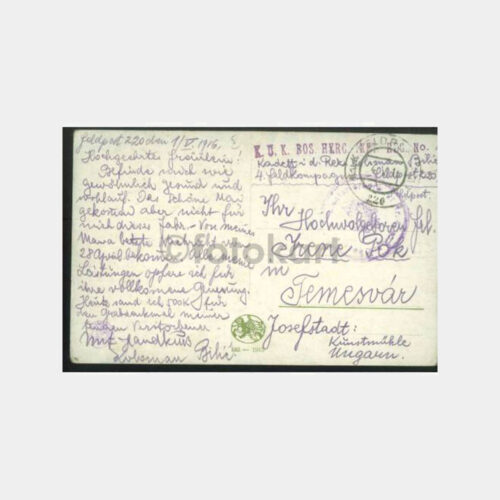 Feldpost 220 den 1/V 1916.
Hochgeehrte Fräulein!
Befinde mich wie
gewöhnlich gesund und
wohlauf. Der schöne Mai
gekommen aber nicht für
mich dieses Jahr - Von meiner
Mama letzte
28 April bekommen
Leistungen opfere ich für
ihre vollkommene Genesung.
Heute sand ich 100K für
den Grabdenkmal meiner
teuren Verstorbenen.
Mit Handkuss
Bilić
K. U. K. BOS. HERC. INFT. REG. No.
Kadett i. d. Res. Bilić
4. Feldkompag Feldpost 220
220
Ihr Hochwohlgeboren
Irene Pok
in
Temesvár
Josefstadt:
Kunstmühle
Ungarn.
©fotokart